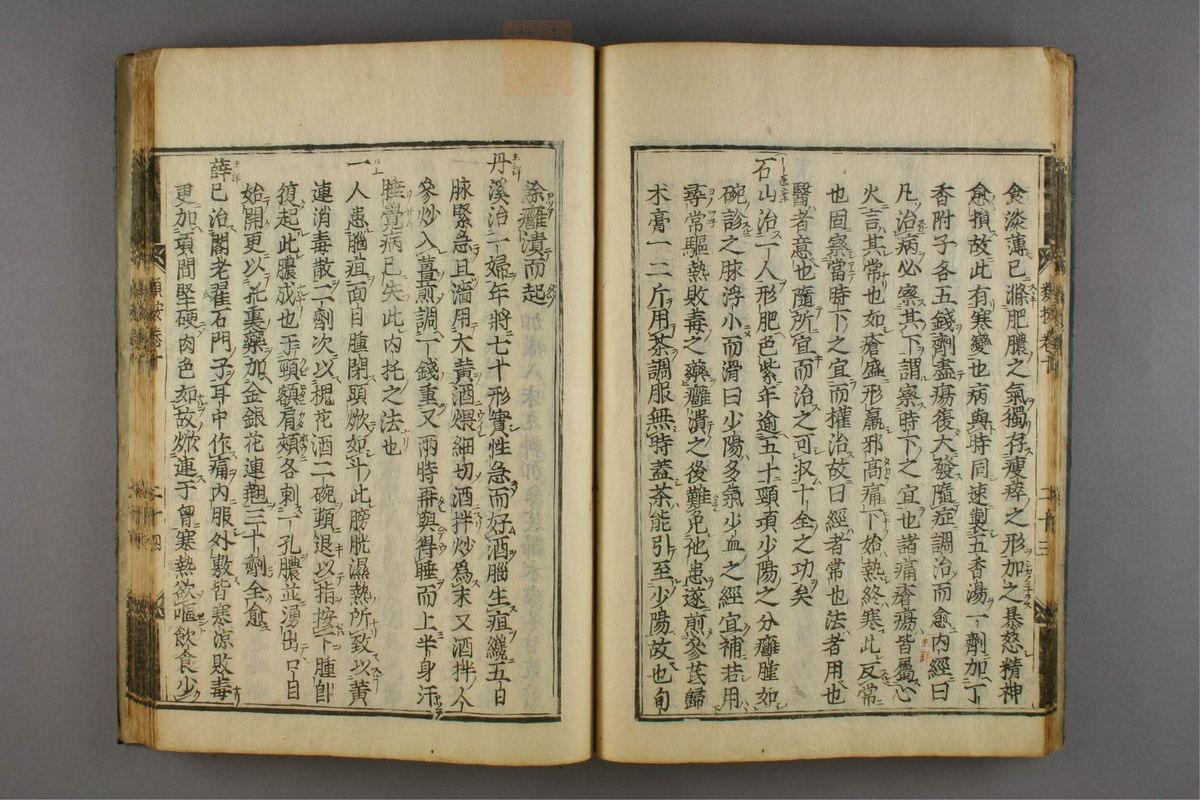 食淡薄已滌肥膿之氣獨存瘦瘁之形加之暴怒精神
愈損故此有寒變也病與時同速製五香湯一劑加丁
香附子各五錢劑盡瘍復大發隨症調治而愈內經曰
凡治病必察其下謂察時下之宜也諸痛瘡瘍皆屬心
火言其常也如瘡盛形羸邪高痛下始熱終寒此反常
也固察當時下之宜而權治故曰經者常也法者用也
醫者意也隨所宜而治之可収十全之功矣
石山治一人形肥色紫年逾五十頸項少陽之分癰腫如
碗診之脉浮小而滑曰少陽多氣少血之經宜補若用
尋常驅熱敗毒之藥癰潰之後難免他患遂煎參芪歸
术膏一二斤用茶調服無時蓋茶能引至少陽故也旬
類按卷十
二十三
餘癰潰而起
丹溪治一婦年將七十形實性急而好酒腦生疽纔五日
脉緊急且濇用大黃酒煨細切酒拌炒為末又酒拌人
參炒入薑煎調一錢重又兩時再與得睡而上半身汗
睡覺病已失此內托之法也
一人患腦疽面目腫閉頭焮如斗此膀胱濕熱所致以黃
連消毒散二劑次以槐花酒二碗頓退以指按下腫即
復起此膿成也于頸額肩頰各刺一孔膿並湧出口目
始開更以托裏藥加金銀花連翹三十劑全愈
薛已治閣老翟石門子耳中作痛內服外敷皆寒涼敗毒
更加項間堅硬肉色如故焮連于胷寒熱欲嘔飲食少
類按卷十
二十四